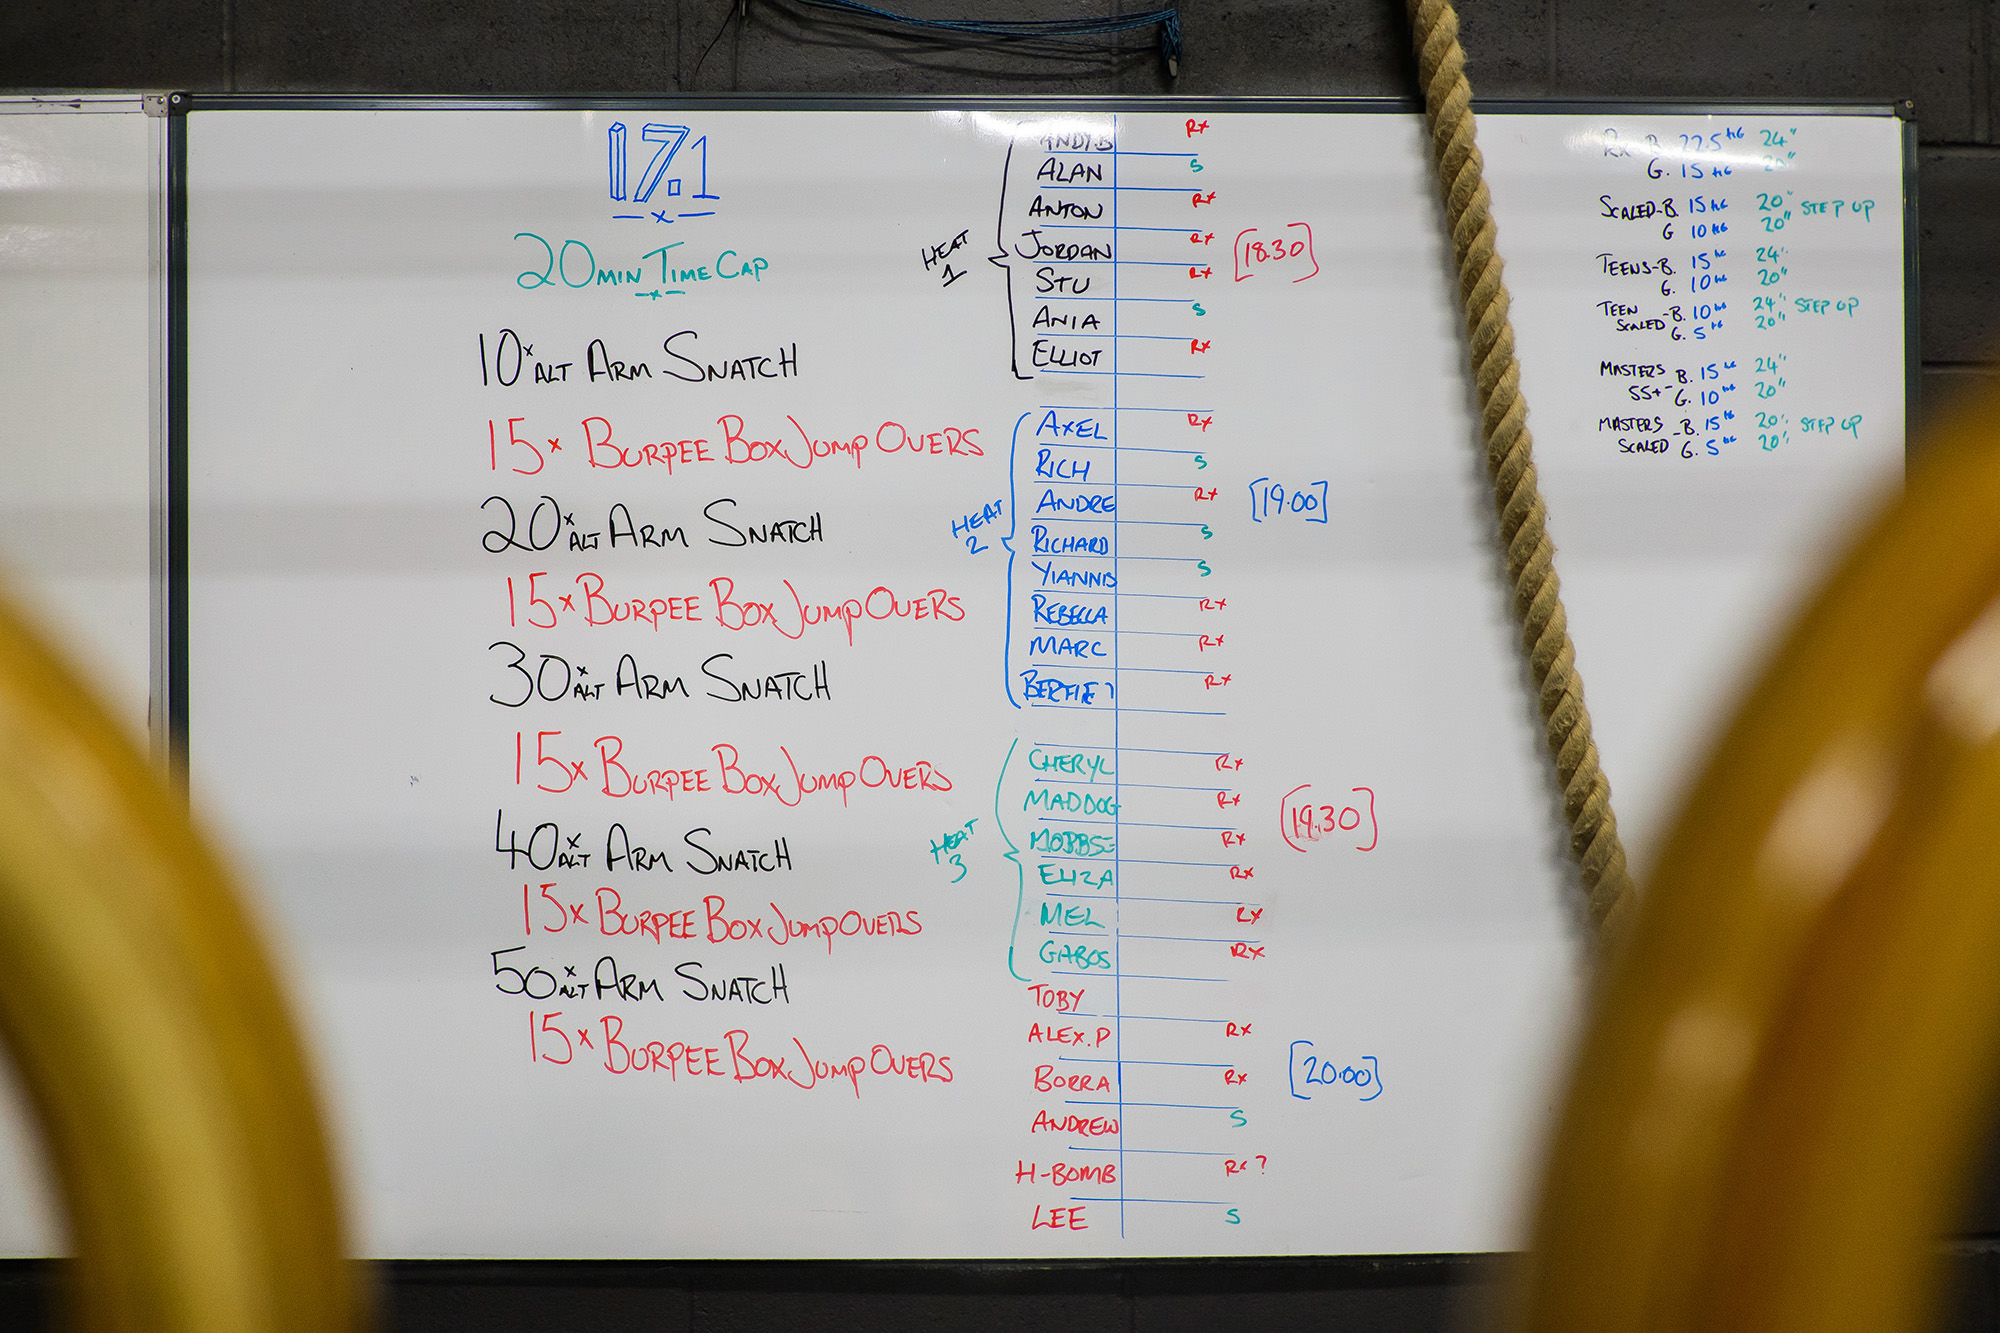 17.1
20 MIN TIME CAP
10 x ALT ARM SNATCH
15 x BURPEE BOX JUMP OVERS
20 x ALT ARM SNATCH
15 x BURPEE BOX JUMP OVERS
30 x ALT ARM SNATCH
15 x BURPEE BOX JUMP OVERS
40 x ALT ARM SNATCH
15 x BURPEE BOX JUMP OVERS
50 x ALT ARM SNATCH
15 x BURPEE BOX JUMP OVERS
HEAT 1
ANDY.B Rx
ALAN S
ANTON Rx
JORDAN Rx
STU Rx
ANIA S
ELLIOT Rx
[18.30]
HEAT 2
AXEL Rx
RICH S
ANDRE Rx
RICHARD S
YIANNIS S
REBECCA Rx
MARC Rx
BERTIE ? Rx
[19.00]
HEAT 3
CHERYL Rx
MADDOG Rx
Rx
ELIZA Rx
MEL Rx
GABOS Rx
[19.30]
TOBY
ALEX.P Rx
BORRA Rx
ANDREW S
H-BOMB Rx ?
LEE S
[20.00]
Rx B. 22.5 KG 24"
G. 15 KG 20"
SCALED-B. 15 KG 20" STEP UP
G 10 KG 20"
TEENS-B. 15 KG 24"
G. 10 KG 20"
TEEN SCALED -B. 10 KG 24" STEP UP
G. 5 KG 20"
MASTERS 55+ - B. 15 KG 24"
G. 10 KG 20"
MASTERS SCALED -B. 15 KG 20" STEP UP
G. 5 KG 20"